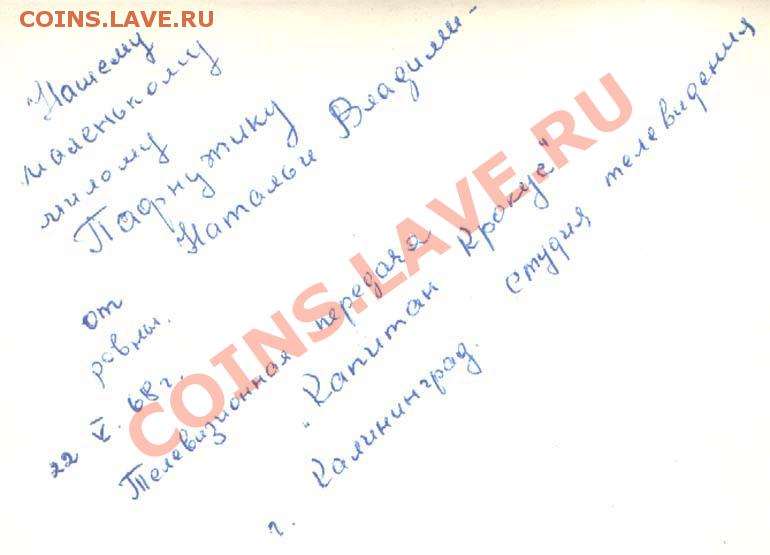 COINS.LAVE.RU
"Нашему
маленькому
милому
Пафнужику
от Натальи Владими-
ровны.
22 V. 68 г.
Телевизионная передача
"Капитан Крокус"
Студия телевидения
г. Калининград.
COINS.LAVE.RU